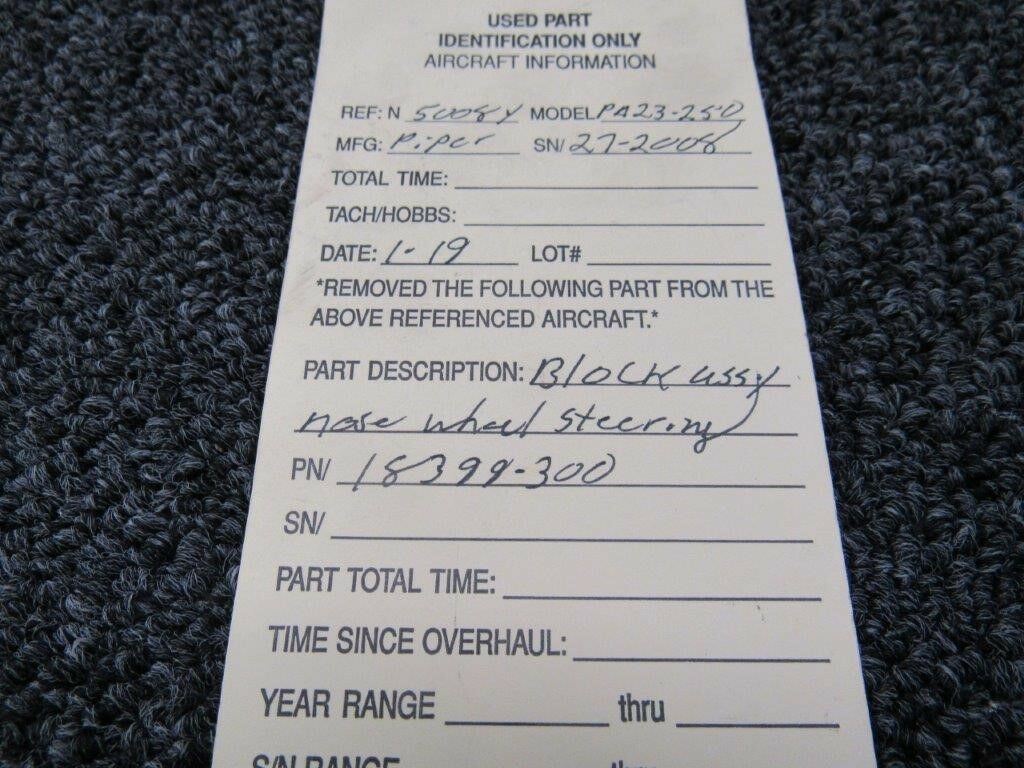 USED PART
IDENTIFICATION ONLY
AIRCRAFT INFORMATION
REF: N 5008Y MODEL PA23-250
MFG: Piper SN/ 27-2008
TOTAL TIME:
TACH/HOBBS:
DATE: 1-19 LOT#
*REMOVED THE FOLLOWING PART FROM THE
ABOVE REFERENCED AIRCRAFT.*
PART DESCRIPTION: Block assy
nose wheel steering
PN/ 18399-300
SN/
PART TOTAL TIME:
TIME SINCE OVERHAUL:
YEAR RANGE thru
S/N RANGE thru